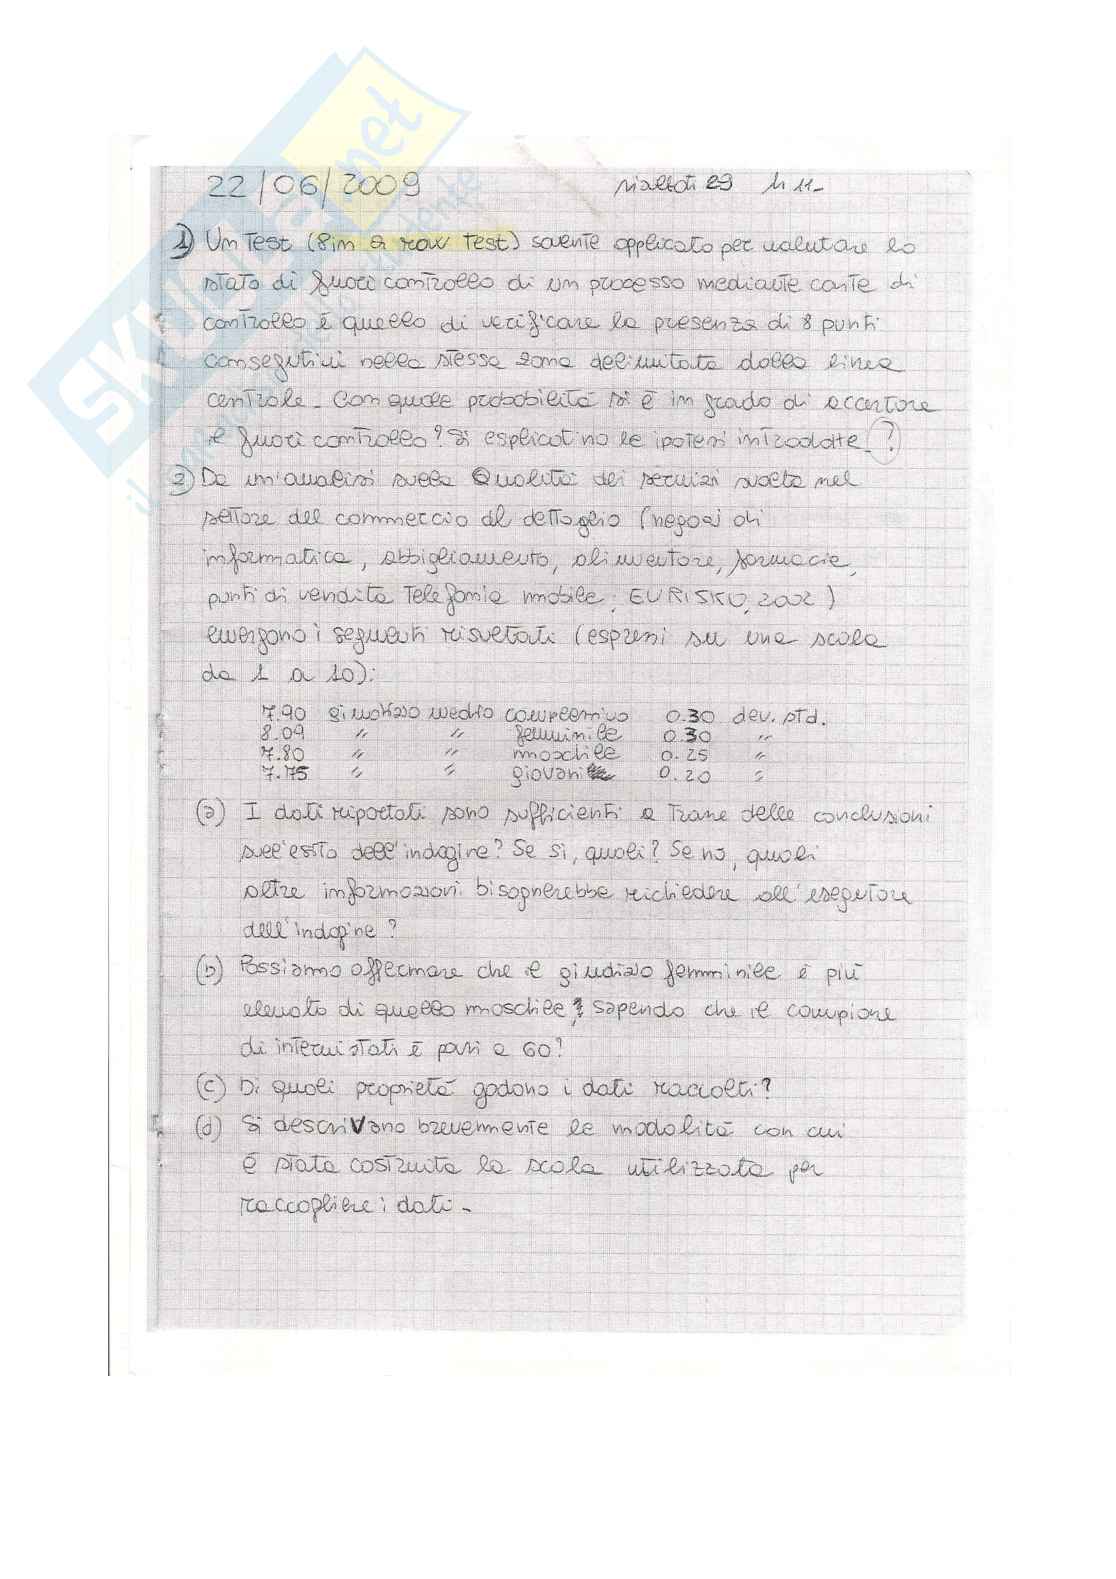 SKUOLA.net
22/06/2009 risultati 29 h 11-
1) Un Test (8 in a row test) sovente applicato per valutare lo
stato di fuori controllo di un processo mediante carte di
controllo è quello di verificare la presenza di 8 punti
consegutivi nella stessa zona delimitata dalla linea
centrale. Con quale probabilità si è in grado di accertare
il fuori controllo? Si esplicatino le ipotesi introdotte. ?
2) Da un'analisi sulla Qualità dei servizi svolta nel
settore del commercio al dettaglio (negozi di
informatica, abbigliamento, alimentare, farmacie,
punti di vendita telefonia mobile; EURISKO, 2002)
emergono i seguenti risultati (espressi su una scala
da 1 a 10):
7.90 giudizio medio complessivo 0.30 dev. std.
8.09 " " femminile 0.30 "
7.80 " " maschile 0.25 "
7.75 " " giovani 0.20 "
(a) I dati riportati sono sufficienti a trarre delle conclusioni
sull'esito dell'indagine? Se sì, quali? Se no, quali
altre informazioni bisognerebbe richiedere all'esegutore
dell'indagine?
(b) Possiamo affermare che il giudizio femminile è più
elevato di quello maschile, sapendo che il campione
di intervistati è pari a 60?
(c) Di quali proprietà godono i dati raccolti?
(d) Si descrivano brevemente le modalità con cui
è stata costruita la scala utilizzata per
raccogliere i dati.